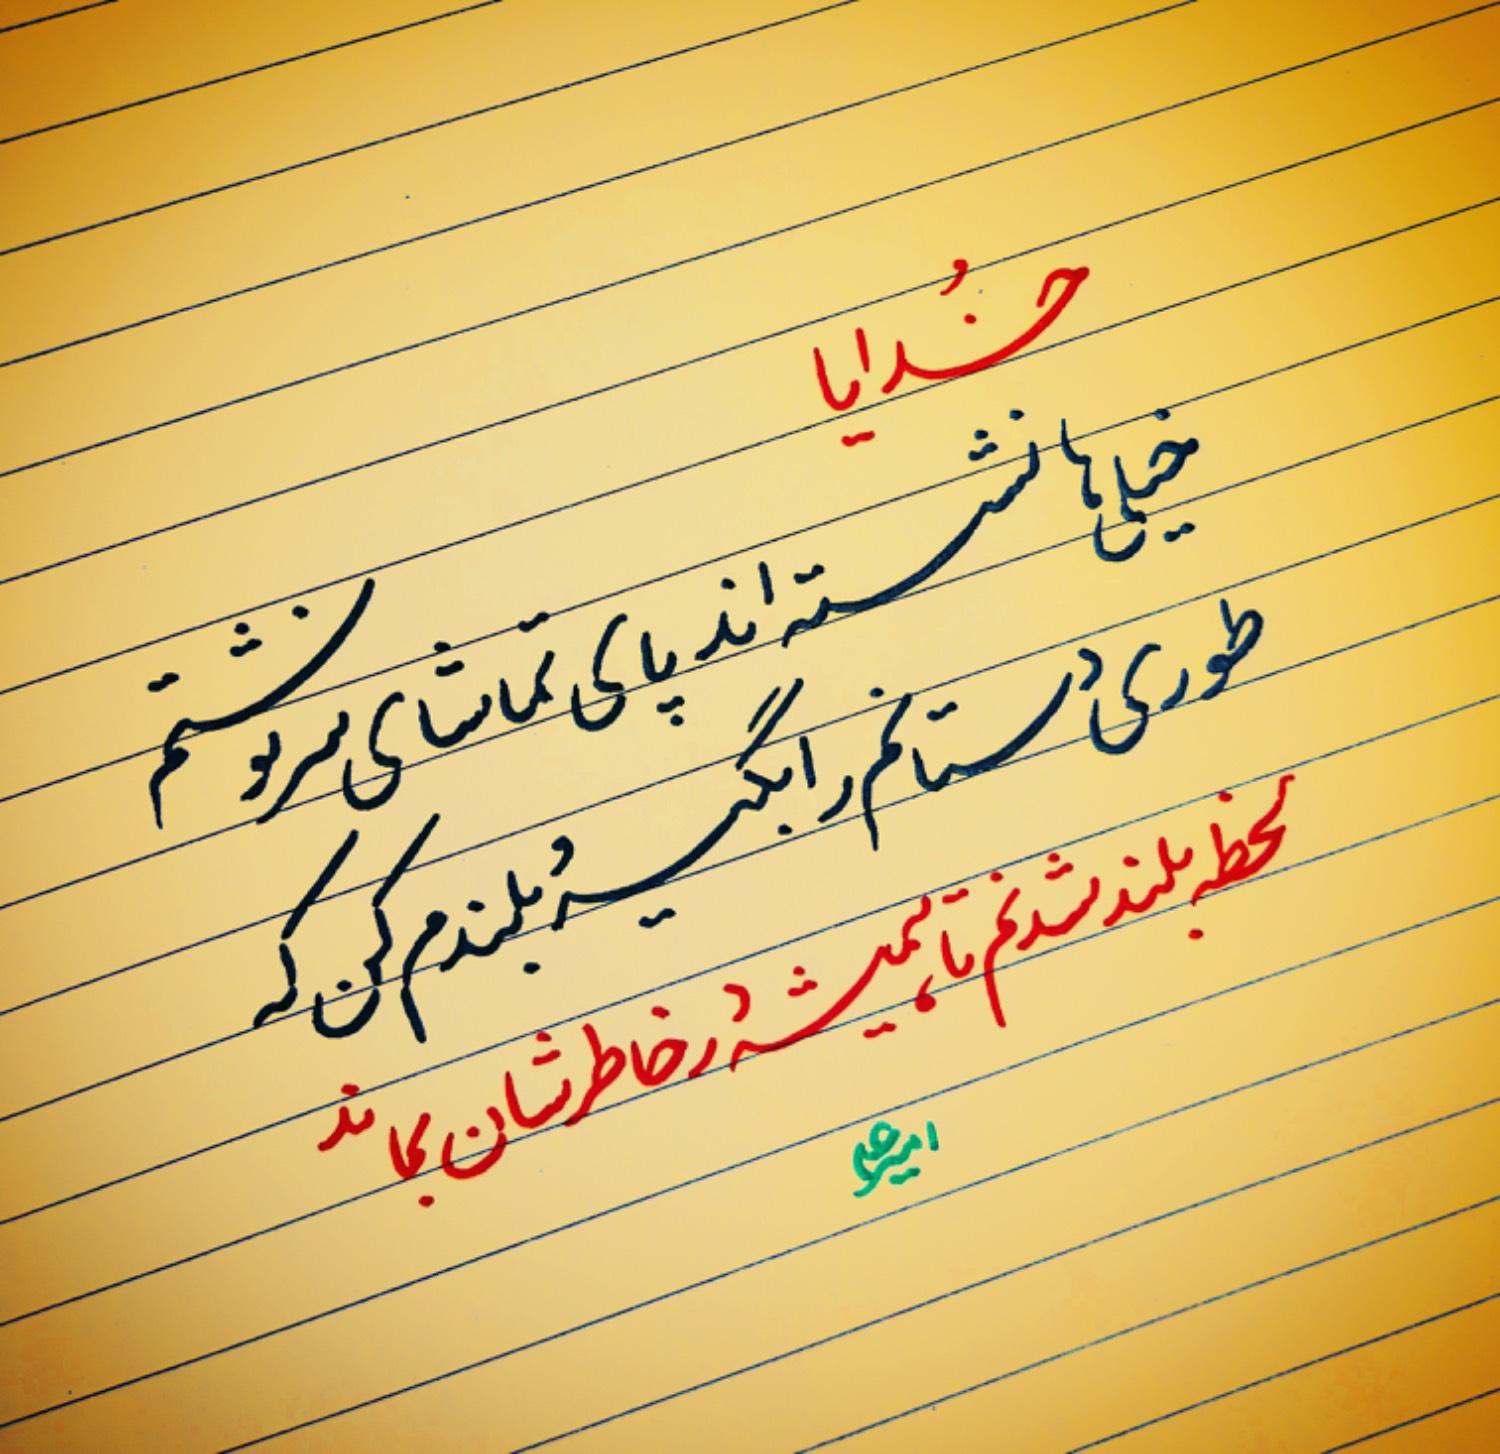 خُدایا
خیلی ها نشسته اند پای تماشای سرنوشتم
طوری دستانم را بگیر و بلندم کن که
لحظه بلند شدنم تا همیشه در خاطرشان بماند
امیرعلی